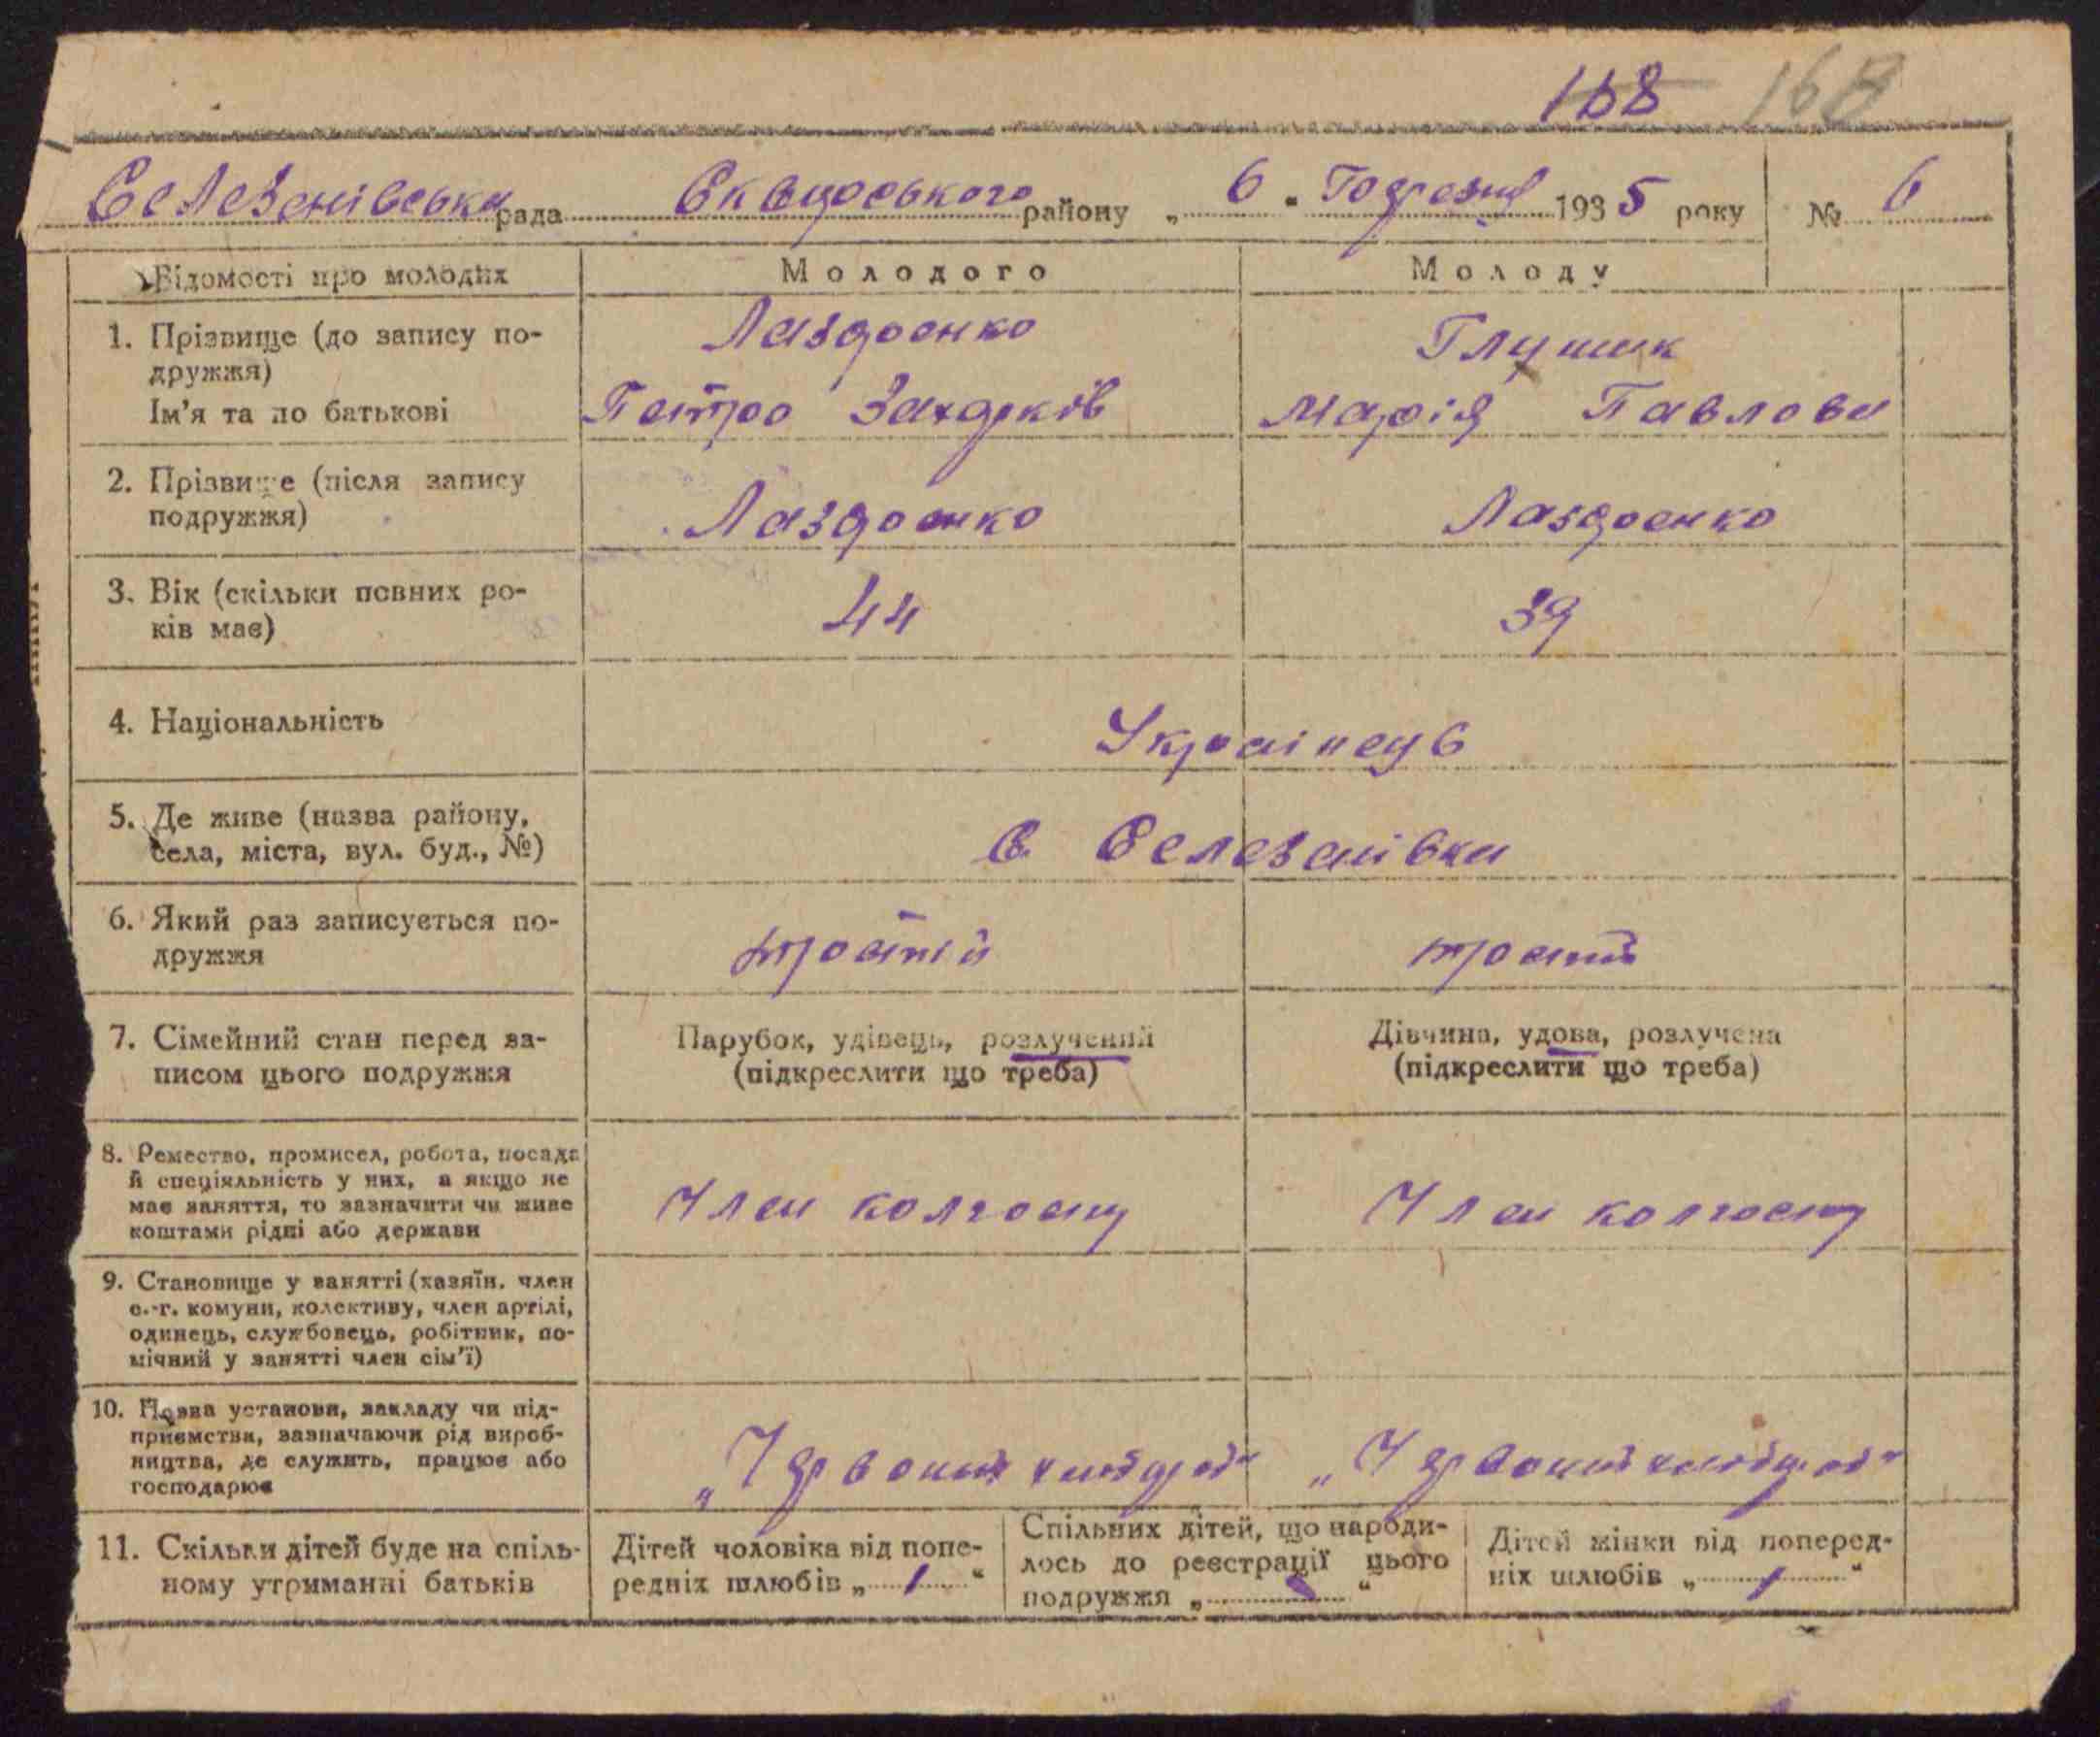 168 168
Селезенівська рада Сквирського району „ 6 “ березня 1935 року № 6
Відомості про молодих Молодого Молоду
1. Прізвище (до запису подружжя) Лазаренко Глущук
Ім’я та по батькові Петро Захарків Марія Павлова
2. Прізвище (після запису подружжя) Лазаренко Лазаренко
3. Вік (скільки повних років має) 44 39
4. Національність Українець
5. Де живе (назва району, села, міста, вул. буд., №) С. Селезенівки
6. Який раз записується подружжя третій третій
7. Сімейний стан перед записом цього подружжя
Парубок, удівець, розлучений (підкреслити що треба)
Дівчина, удова, розлучена (підкреслити що треба)
8. Ремество, промисел, робота, посада
й спеціяльність у них, а якщо не
має заняття, то зазначити чи живе
коштами рідні або держави
Член колгоспу Член колгоспу
9. Становище у занятті (хазяїн, член
с.-г. комуни, колективу, член артілі,
одинець, службовець, робітник, по-
мічний у занятті член сім’ї)
10. Назва установи, закладу чи під-
приємства, зазначаючи рід вироб-
ництва, де служить, працює або
господарює
11. Скільки дітей буде на спіль-
ному утриманні батьків
Дітей чоловіка від попе-
редніх шлюбів „ 1 “
Спільних дітей, що народи-
лось до реєстрації цього
подружжя „ “
Дітей жінки від поперед-
ніх шлюбів „ 1 “